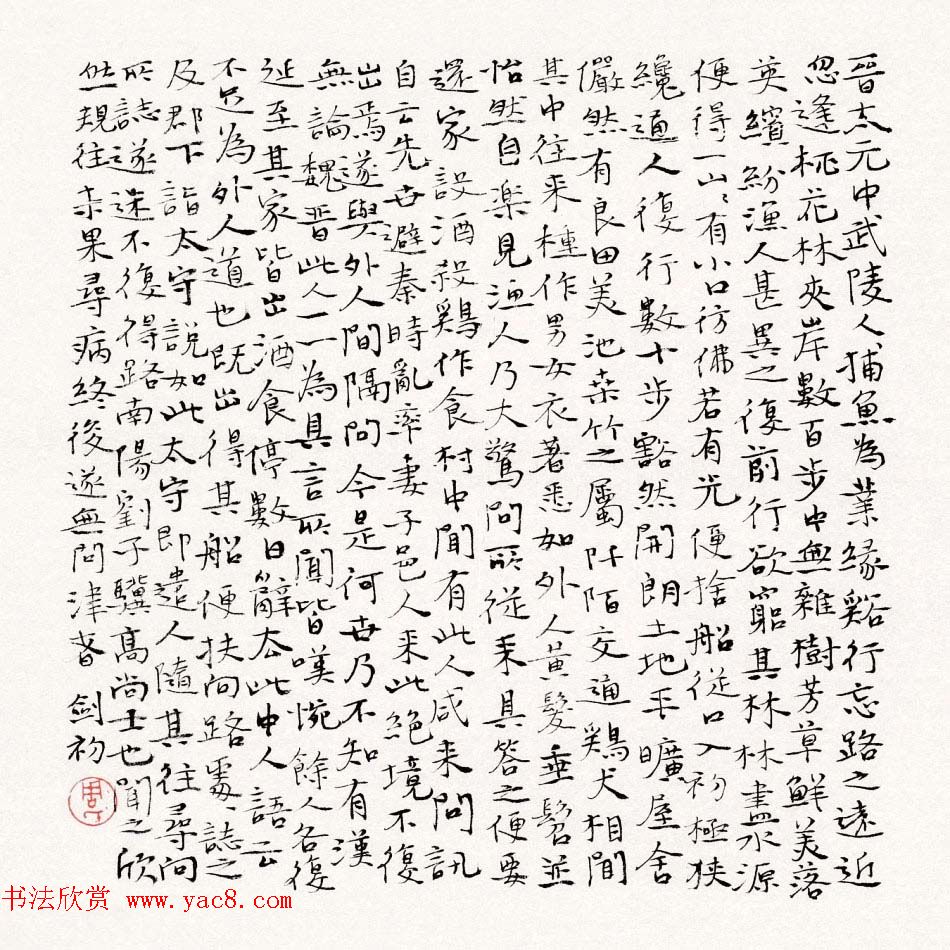 晉太元中武陵人捕魚為業緣谿行忘路之遠近
忽逢桃花林夾岸數百步中無雜樹芳草鮮美落
英繽紛漁人甚異之復前行欲窮其林林盡水源
便得一山〻有小口彷佛若有光便捨船從口入初極狹
纔通人復行數十步豁然開朗土地平曠屋舍
儼然有良田美池桑竹之屬阡陌交通鷄犬相聞
其中往来種作男女衣著悉如外人黃髮垂髫並
怡然自樂見漁人乃大驚問所從来具答之便要
還家設酒殺鷄作食村中聞有此人咸来問訊
自云先世避秦時亂率妻子邑人来此絕境不復
出焉遂與外人間隔問今是何世乃不知有漢
無論魏晉此人一一為具言所聞皆嘆惋餘人各復
延至其家皆出酒食停數日辭去此中人語云
不足為外人道也既出得其船便扶向路處〻誌之
及郡下詣太守說如此太守即遣人隨其往尋向
所誌遂迷不復得路南陽劉子驥高尚士也聞之欣
然規往未果尋病終後遂無問津者 劍初
书法欣赏 www.yac8.com